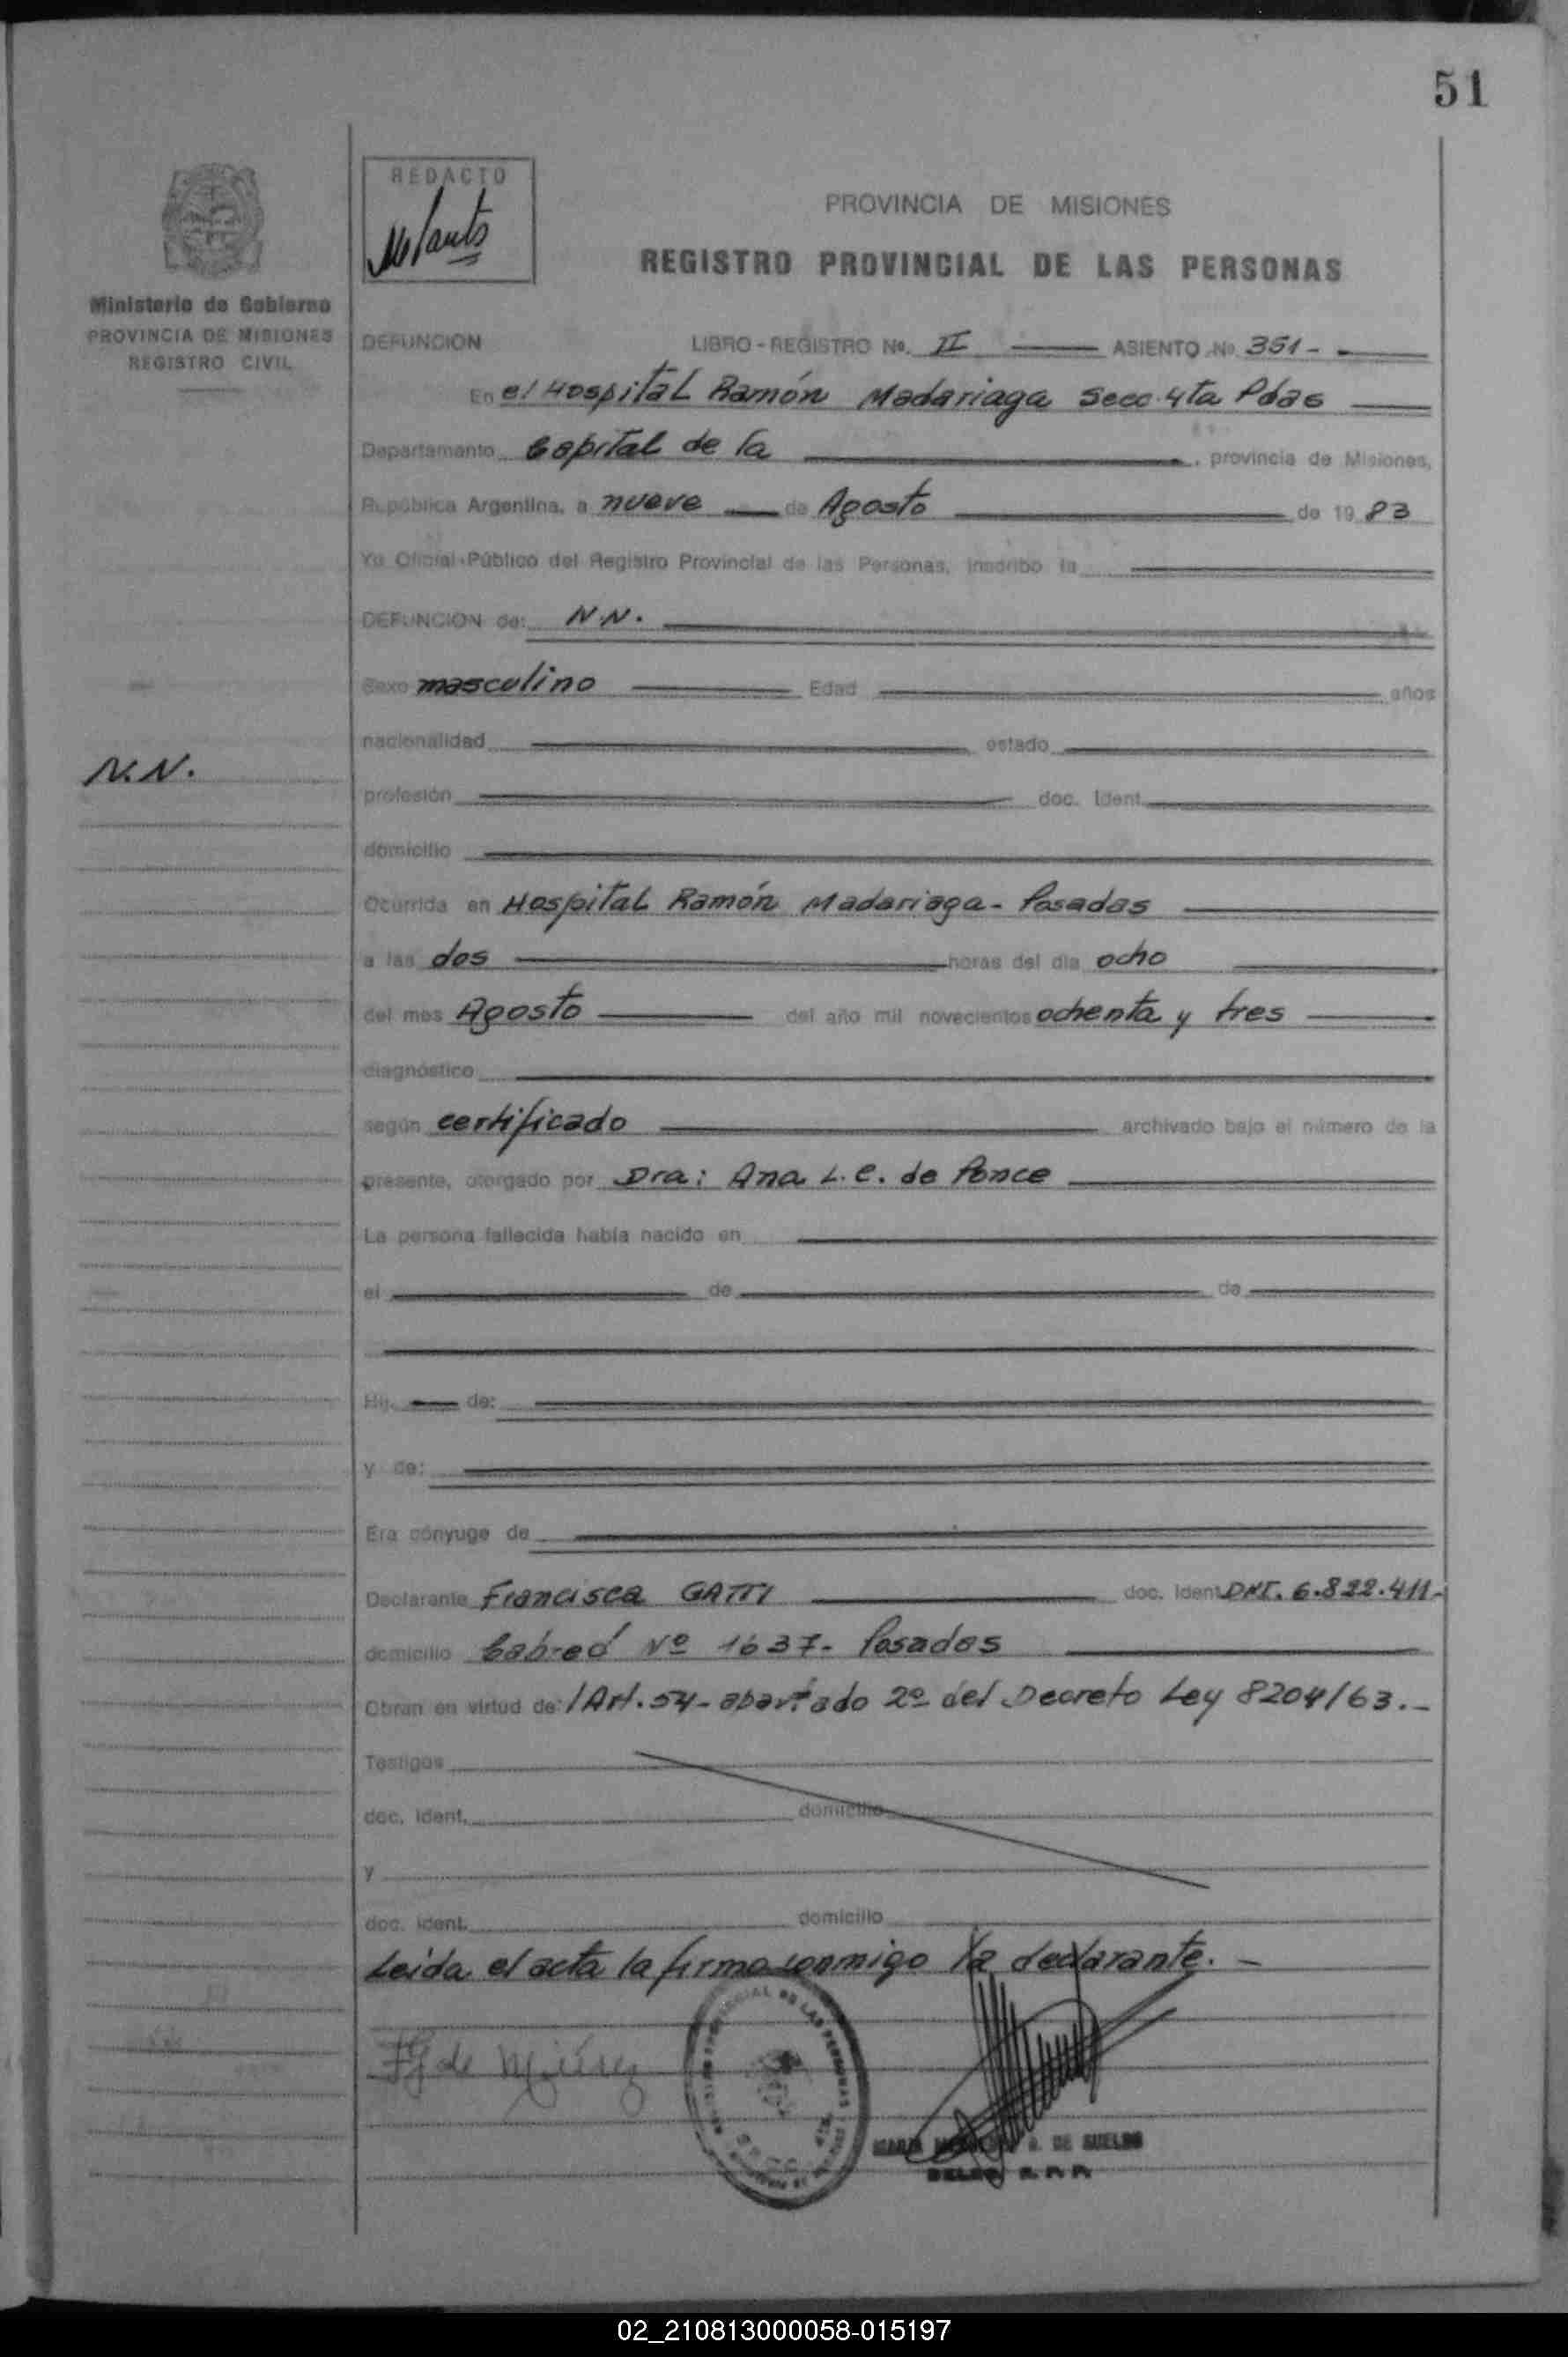 51
REDACTO
PROVINCIA DE MISIONES
REGISTRO PROVINCIAL DE LAS PERSONAS
Ministerio de Gobierno
PROVINCIA DE MISIONES
REGISTRO CIVIL
DEFUNCION LIBRO - REGISTRO No. II ASIENTO No 351 -
En el Hospital Ramón Madariaga Secc. 4ta Pdas
Departamento Capital de la , provincia de Misiones,
República Argentina, a nueve de Agosto de 19 83
Yo Oficial Público del Registro Provincial de las Personas, inscribo la
DEFUNCION de: N.N.
Sexo masculino Edad años
nacionalidad estado
N.N.
profesión doc. Ident.
domicilio
Ocurrida en Hospital Ramón Madariaga - Posadas
a las dos horas del día ocho
del mes Agosto del año mil novecientos ochenta y tres
diagnóstico
según certificado archivado bajo el número de la
presente, otorgado por Dra: Ana L. C. de Ponce
La persona fallecida había nacido en
el de de
Hij de:
y de:
Era cónyuge de
Declarante Francisca GATTI doc. Ident DNI. 6.822.411-
domicilio Cabred Nº 1637- Posadas
Obran en virtud de: /Art. 54- apartado 2º del Decreto Ley 8204/63.-
Testigos
doc. ident. domicilio
y
doc. ident. domicilio
Leída el acta la firma conmigo la declarante. -
MARIA DE SUELDO
DELEG. R. P. P.
02_210813000058-015197